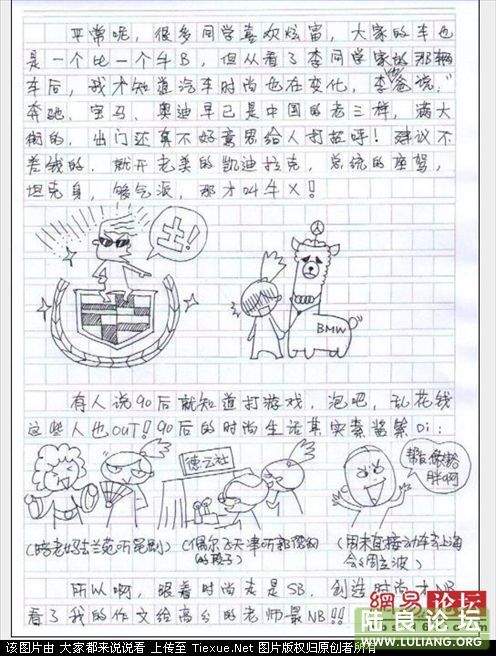 平常呢，很多同学喜欢炫富，大家的车也
是一个比一个牛B，但从看了李同学家的那辆
车后，我才知道汽车时尚也在变化，李爸说："
奔驰、宝马、奥迪早已是中国的老三样，满大
街的，出门还真不好意思给人打招呼！建议不
差钱的，就开老美的凯迪拉克，总统的座驾，
坦克身，够气派，那才叫牛X！
土！
BMW
有人说90后就知道打游戏，泡吧，乱花钱
这些人也OUT！90后的时尚生活其实素酱紫Di：
德云社
帮你
(陪老妈去兰苑听昆剧)
(偶尔 听郭德纲的段子)
(周末直接动车去上海会会周立波)
所以啊，跟着时尚走是SB，创造时尚才NB
看了我的作文给高分的老师最NB!!
网易 论坛
陆良论坛
WWW.LULIANG.ORG
该图片由 大家都来说说看 上传至 Tiexue.Net 图片版权归原创者所有